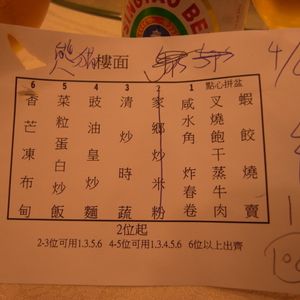 TSINGTAO BEER
熊猫樓面
4/
1 點心拼盆
蝦餃燒賣
叉燒飽干蒸牛肉
咸水角炸春卷
2
家鄉炒米粉
3
清炒時蔬
4
豉油皇炒麵
5
菜粒蛋白炒飯
6
香芒凍布甸
2位起
2-3位可用1.3.5.6 4-5位可用1.3.4.5.6 6位以上出齊